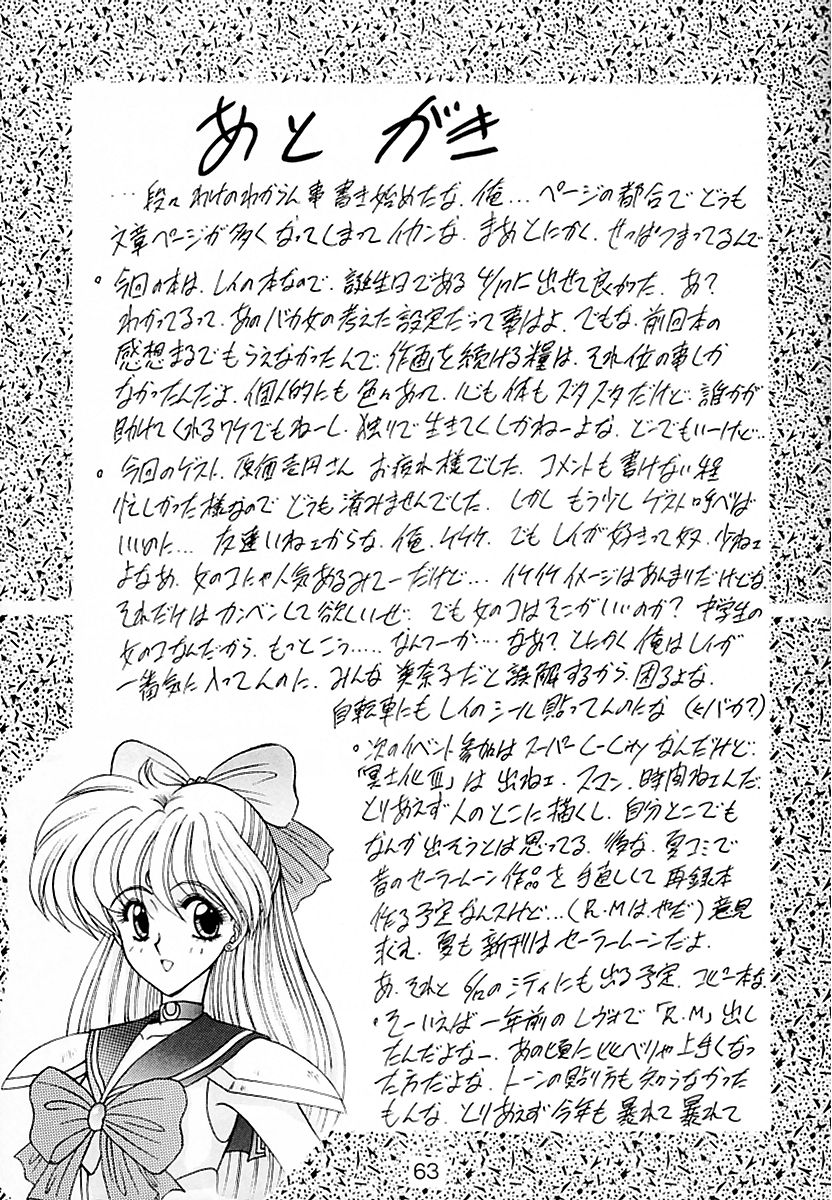 あとがき
…段々わけのわからん事書き始めたな、俺…ページの都合でどうも
文章ページが多くなってしまってイカンな。まあとにかく、せっぱつまってるんで
。今回の本は、レイの本なので、誕生日である4/17に出せて良かった。あ?
わかってるって、あのバカ女の考えた設定だって事はよ。でもな、前回本の
感想まるでもらえなかったんで、作画を続ける糧は、それ位の事しか
なかったんだよ。個人的にも色々あって、心も体もズタズタだけど、誰かが
助けてくれるワケでもねーし、独りで生きてくしかねーよな。どーでもいーけど…
。今回のゲスト、原価壱円さん お疲れ様でした。コメントも書けない程
忙しかった様なので どうも済みませんでした。しかし もう少しゲスト呼べれば
いいのに… 友達いねェからな、俺。ケケケ。でも レイが好きって奴、少ねェ
よなあ。女のコにゃ人気あるみてーだけど… イケイケイメージはあんまりだけどな
それだけはカンベンして欲しいぜ。でも女のコはそこがいいのか? 中学生の
女のコなんだから、もっとこう…… なんつーか… なあ? とにかく俺はレイが
一番気に入ってんのに、みんな 美奈子だと誤解するから、困るよな。
自転車にもレイのシール貼ってんのにな (←バカ?)
。次のイベント参加はスーパーC-Cityなんだけど、
「冥土化Ⅲ」は出ねェ。スマン。時間ねェんだ。
とりあえず人のとこに描くし、自分とこでも
なんか出そうとは思ってる。 な。夏コミで
昔のセーラームーン作品を手直しして再録本
作る予定なんスけど…(R.Mはやだ)意見
求む。夏も新刊はセーラームーンだよ。
あ、それと 6/10のシティにも出る予定。コピー本な。
。そーいえば一年前のレヴォで「R.M」出し
たんだよなー。あの頃に比べりゃ上手くなっ
た方だよな。トーンの貼り方も知らなかった
もんな。とりあえず今年も暴れて暴れて
63